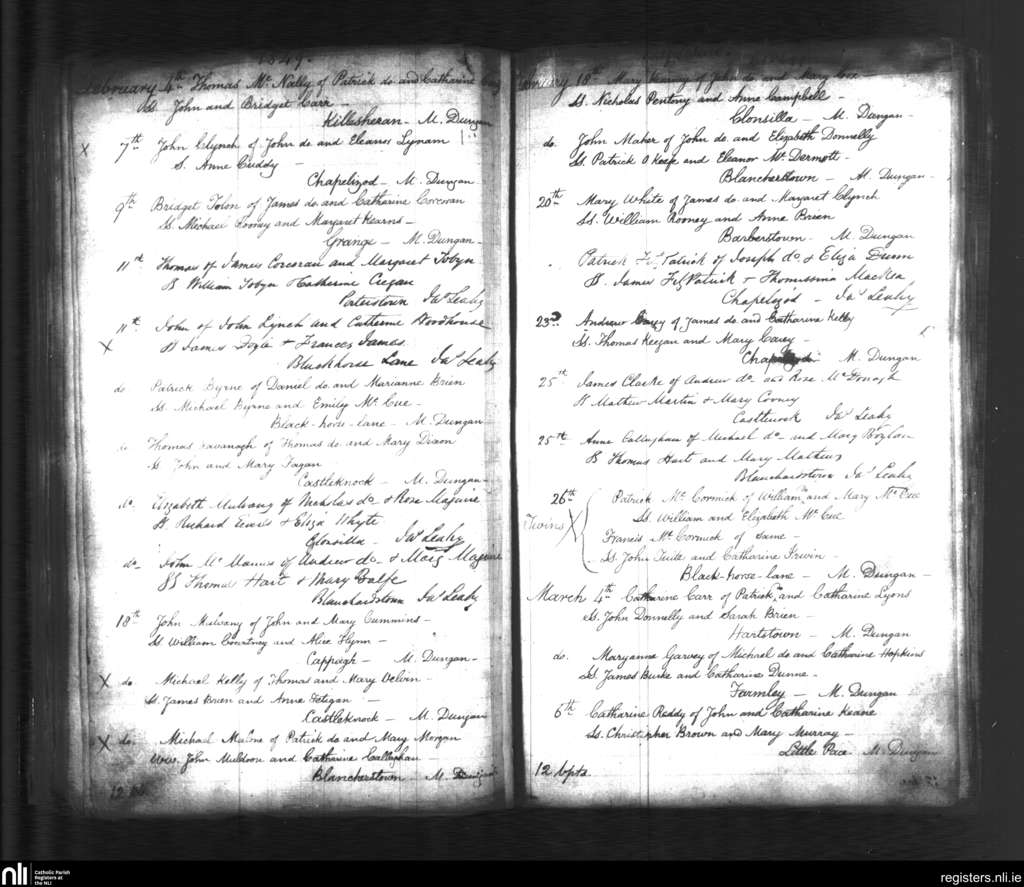 1849.
February 4th Thomas Mc Nally of Patrick do. and Catharine
Ss. John and Bridget Carr -
Killesheran - M. Dungan
X 7th John Clynch of John do and Eleanor Lynam
S. Anne Cuddy -
Chapelizod - M. Dungan
9th Bridget Tolon of James do. and Catharine Corcoran
Ss. Michael Rooney and Margaret Kearns -
Grange - M. Dungan -
11th Thomas of James Corcoran and Margaret Tobyn
Ss William Tobyn & Catherine Cregan
Peterstown Jas Leahy
X 11th John of John Lynch and Catherine Woodhouse
Ss James Fogle & Frances James
Blackhorse Lane Jas Leahy
do Patrick Byrne of Daniel do. and Marianne Brien
Ss Michael Byrne and Emily Mc Cue -
Black-horse-lane - M. Dungan
do Thomas Kavanagh of Thomas do. and Mary Dixon
Ss John and Mary Fagan
Castleknock - M. Dungan -
do. Elizabeth Mulvany of Nicholas do. & Rose Maguire
Ss. Richard Lewis & Eliza Whyte
Clonsilla - Jas Leahy
do John Mc Manus of Andrew do & Mary Maguire
SS Thomas Hart & Mary Balfe
Blanchardstown Jas Leahy
18th John Mulvany of John and Mary Cummins -
Ss William Courtney and Alice Flynn -
Cappagh - M. Dungan -
X do. Michael Kelly of Thomas and Mary Delvin -
Ss. James Brien and Anne Fetigan -
Castleknock - M. Dungan
X do. Michael Malone of Patrick do. and Mary Morgan
John Muldoon and Catharine Callaghan
Blancherstown - M. Dungan
12
February 18th Mary Keavy of John do and Mary
Ss. Nicholas Pentony and Anne Campbell -
Clonsilla - M. Dungan -
do. John Maher of John do. and Elizabeth Donnelly
Ss. Patrick O Keefe and Eleanor Mc Dermott -
Blancherstown - M. Dungan -
20th Mary White of James do. and Margaret Clynch
Ss. William Rooney and Anne Brien
Barberstown - M. Dungan
Patrick Fitz Patrick of Joseph do & Eliza Dunn
Ss. James FitzPatrick & Thomissina
Chapelizod - Jas Leahy
23d Andrew Casey of James do. and Catharine Kelly
Ss. Thomas Keegan and Mary Casey -
M. Dungan
25th James Clarke of Andrew do and Rose Mc Donogh
Ss Mathew Martin & Mary Cooney
Castleknock Jas Leahy
25th Anne Callaghan of Michael do. and Mary Boylan
Ss Thomas Hart and Mary Mathews
Blanchardstown Jas Leahy
26th Patrick Mc Cormick of William and Mary Mc Cue
Ss. William and Elizabeth Mc Cue
Twins X Francis Mc Cormick of same -
Ss. John Tuite and Catharine Irwin -
Black-horse-lane - M. Dungan -
March 4th Catharine Carr of Patrick and Catharine Lyons
Ss. John Donnelly and Sarah Brien
Hartstown - M. Dungan
do. Maryanne Garvey of Michael do and Catharine Hopkins
Ss. James Burke and Catharine Dunne -
Farmley - M. Dungan
6th Catharine Reddy of John and Catharine Keane
Ss. Christopher Brown and Mary Murray -
Little Pace M Dungan
12 bpts.
nli Catholic Parish
Registers at
the NLI
registers.nli.ie